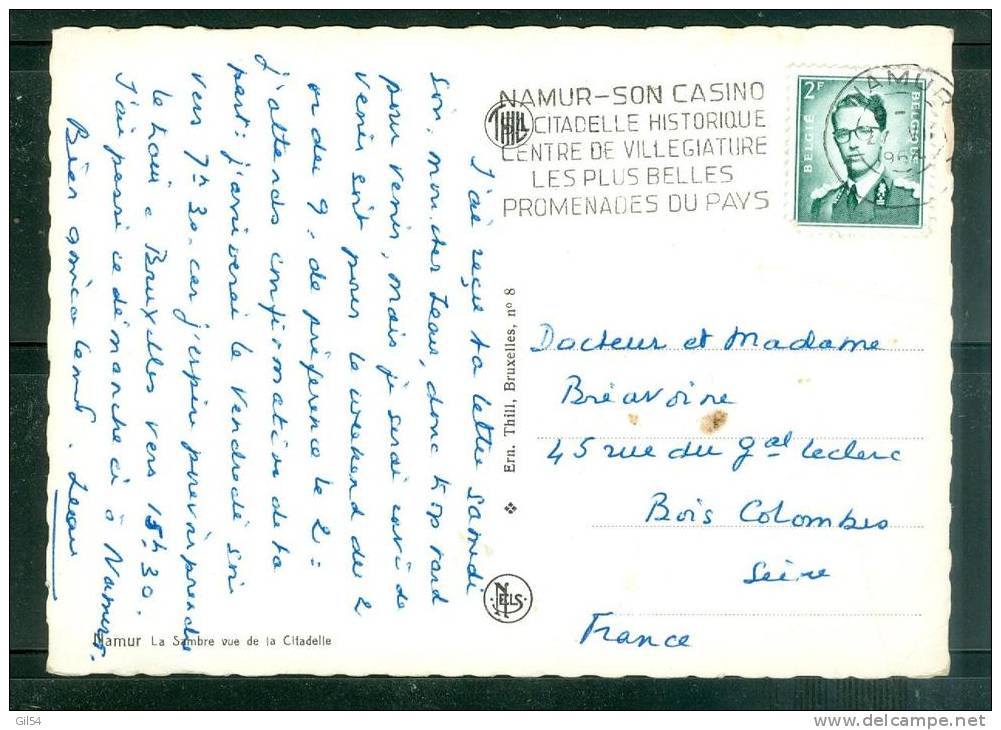 NAMUR-SON CASINO
CITADELLE HISTORIQUE
CENTRE DE VILLEGIATURE
LES PLUS BELLES
PROMENADES DU PAYS
THILL
2F
BELGIE
BELGIQUE
NAMUR
J'ai reçu ta lettre samedi
soir, mon cher Jean, donc trop tard
pour venir, mais je serai ravi de
venir soit pour le weekend du 2
ou du 9. de préférence le 2:
J'attends confirmation de ta
part: j'arriverai le vendredi soir
vers 7h 30. car j'espère pouvoir prendre
le train à Bruxelles vers 15h 30.
J'ai passé ce dimanche ci à Namur.
Bien amicalement. Jean
Docteur et Madame
Bréavoine
45 rue du Gal Leclerc
Bois Colombes
Seine
France
Ern. Thill, Bruxelles, nº 8
NELS
Namur La Sambre vue de la Citadelle
Gil54
www.delcampe.net